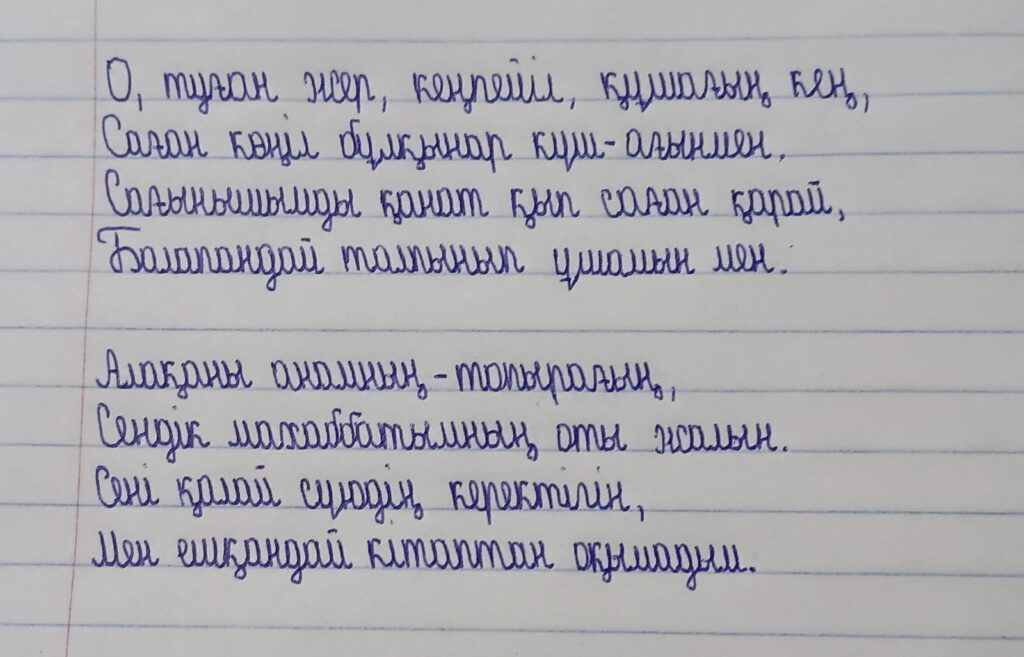 О, туған жер, кеңпейіл, құшағың кең,
Саған көңіл бұлқынар күш-ағынмен.
Сағынышымды қанат қып саған қарай,
Балапандай талпынып ұшамын мен.
Алақаны анамның-топырағың,
Сендік махаббатымның оты жалын.
Сені қалай сүюдің керектігін,
Мен ешқандай кітаптан оқымадым.